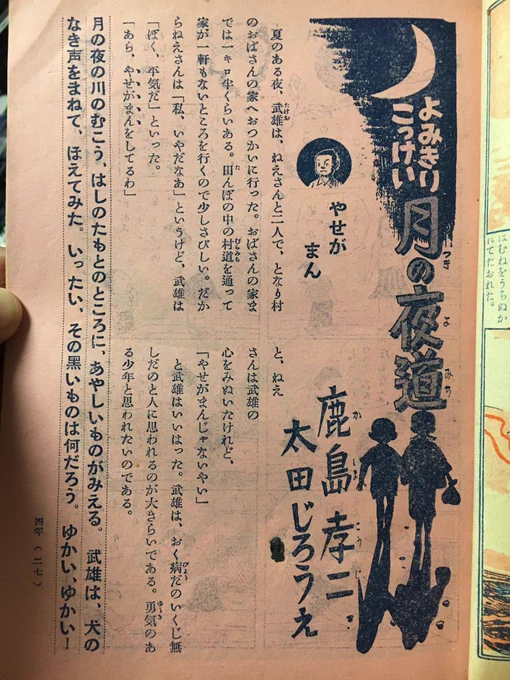 よみきり
こっけい
月の夜道
つき
よ
みち
鹿島孝二
か
しま
こう
じ
太田じろうえ
やせが
まん
夏のある夜、武雄は、ねえさんと二人で、となり村
たけお
のおばさんの家へおつかいに行った。おばさんの家ま
では一キロ半くらいある。田んぼの中の村道を通って
た
むらみち
家が一軒もないところを行くので少しさびしい。だか
けん
らねえさんは「私、いやだなあ」というけど、武雄は
「ぼく、平気だ」といった。
「あら、やせがまんをしてるわ」
と、ねえ
さんは武雄の
心をみぬいたけれど、
「やせがまんじゃないやい」
と武雄はいいはった。武雄は、おく病だのいくじ無
びょう
しだのと人に思われるのが大きらいである。勇気のあ
ゆうき
る少年と思われたいのである。
月の夜の川のむこう、はしのたもとのところに、あやしいものがみえる。武雄は、犬の
なき声をまねて、ほえてみた。いったい、その黒いものは何だろう。ゆかい、ゆかい―
四年(二七)
はむねをうちぬか
れてたおれた。